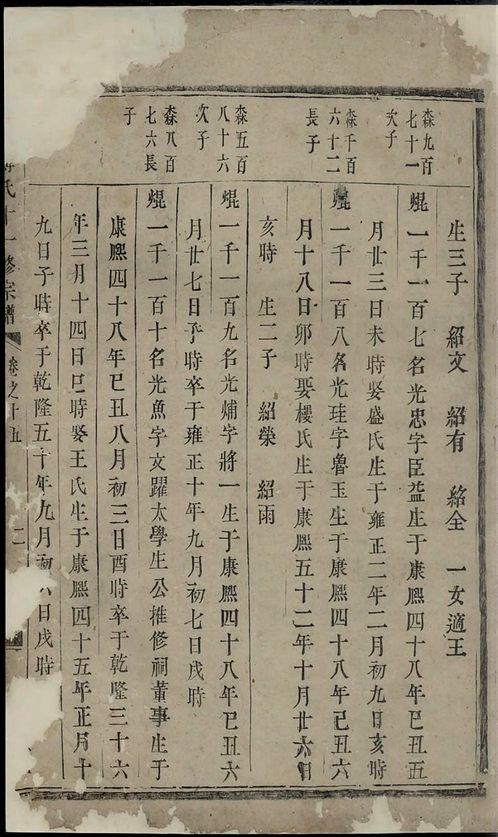 生三子　紹文　紹有　紹全　一女適王
森九百
七十一
次子
焜一千一百七名光忠字臣益生于康熙四十八年己丑五
月廿三日未時娶盛氏生于雍正二年二月初九日亥時
森千百
六十二
長子
焜一千一百八名光珪字魯玉生于康熙四十八年己丑六
月十八日卯時娶樓氏生于康熙五十二年十月廿六日
亥時　生二子　紹榮　紹雨
森五百
八十六
次子
焜一千一百九名光焴字將一生于康熙四十八年己丑六
月廿七日子時卒于雍正十年九月初七日戌時
森八百
七六長
子
焜一千一百十名光魚字文躍太學生公推修祠董事生于
康熙四十八年己丑八月初三日酉時卒于乾隆三十六
年三月十四日巳時娶王氏生于康熙四十五年正月十
九日子時卒于乾隆五十年九月初六日戌時
氏十一修宗譜　卷之十五　二